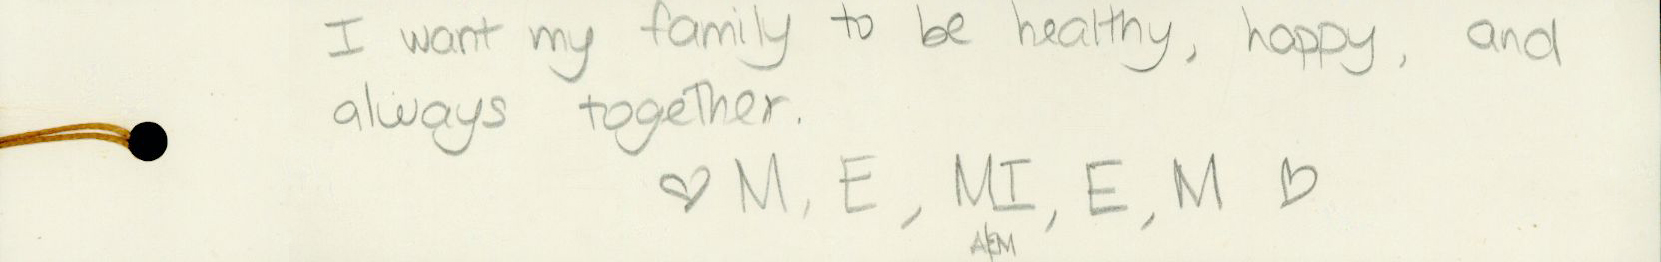 I want my family to be healthy, happy, and
always together.
♡ M, E, MI, E, M ♡